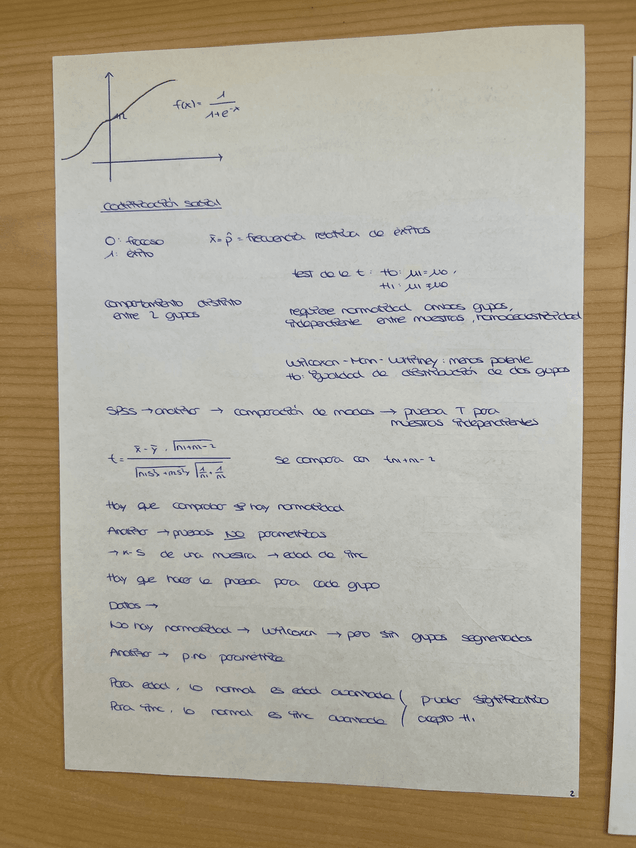 1/2
f(x) = 1 / 1+e^-x
codificación social
0: fracaso
1: éxito
x̄ = p̂ = frecuencia relativa de éxitos
test de la t: H0: μ1=μ0.
H1: μ1≠μ0
comportamiento distinto
entre 2 grupos
requiere normalidad ambos grupos,
independiente entre muestras, homocedasticidad
Wilcoxon-Mann-Whitney: menos potente
H0: igualdad de distribución de dos grupos
SPSS → analizar → comparación de medias → prueba T para
muestras independientes
se compara con t n1+m-2
Hay que comprobar si hay normalidad
Analizar → pruebas NO paramétricas
→ K-S de una muestra → edad de
Hay que hacer la prueba para cada grupo
Datos →
No hay normalidad → Wilcoxon → pero sin grupos segmentados
Analizar → p.no paramétrica
Para edad, lo normal es edad avanzada
Para , lo normal es avanzada
p-valor significativo
acepto H1
2